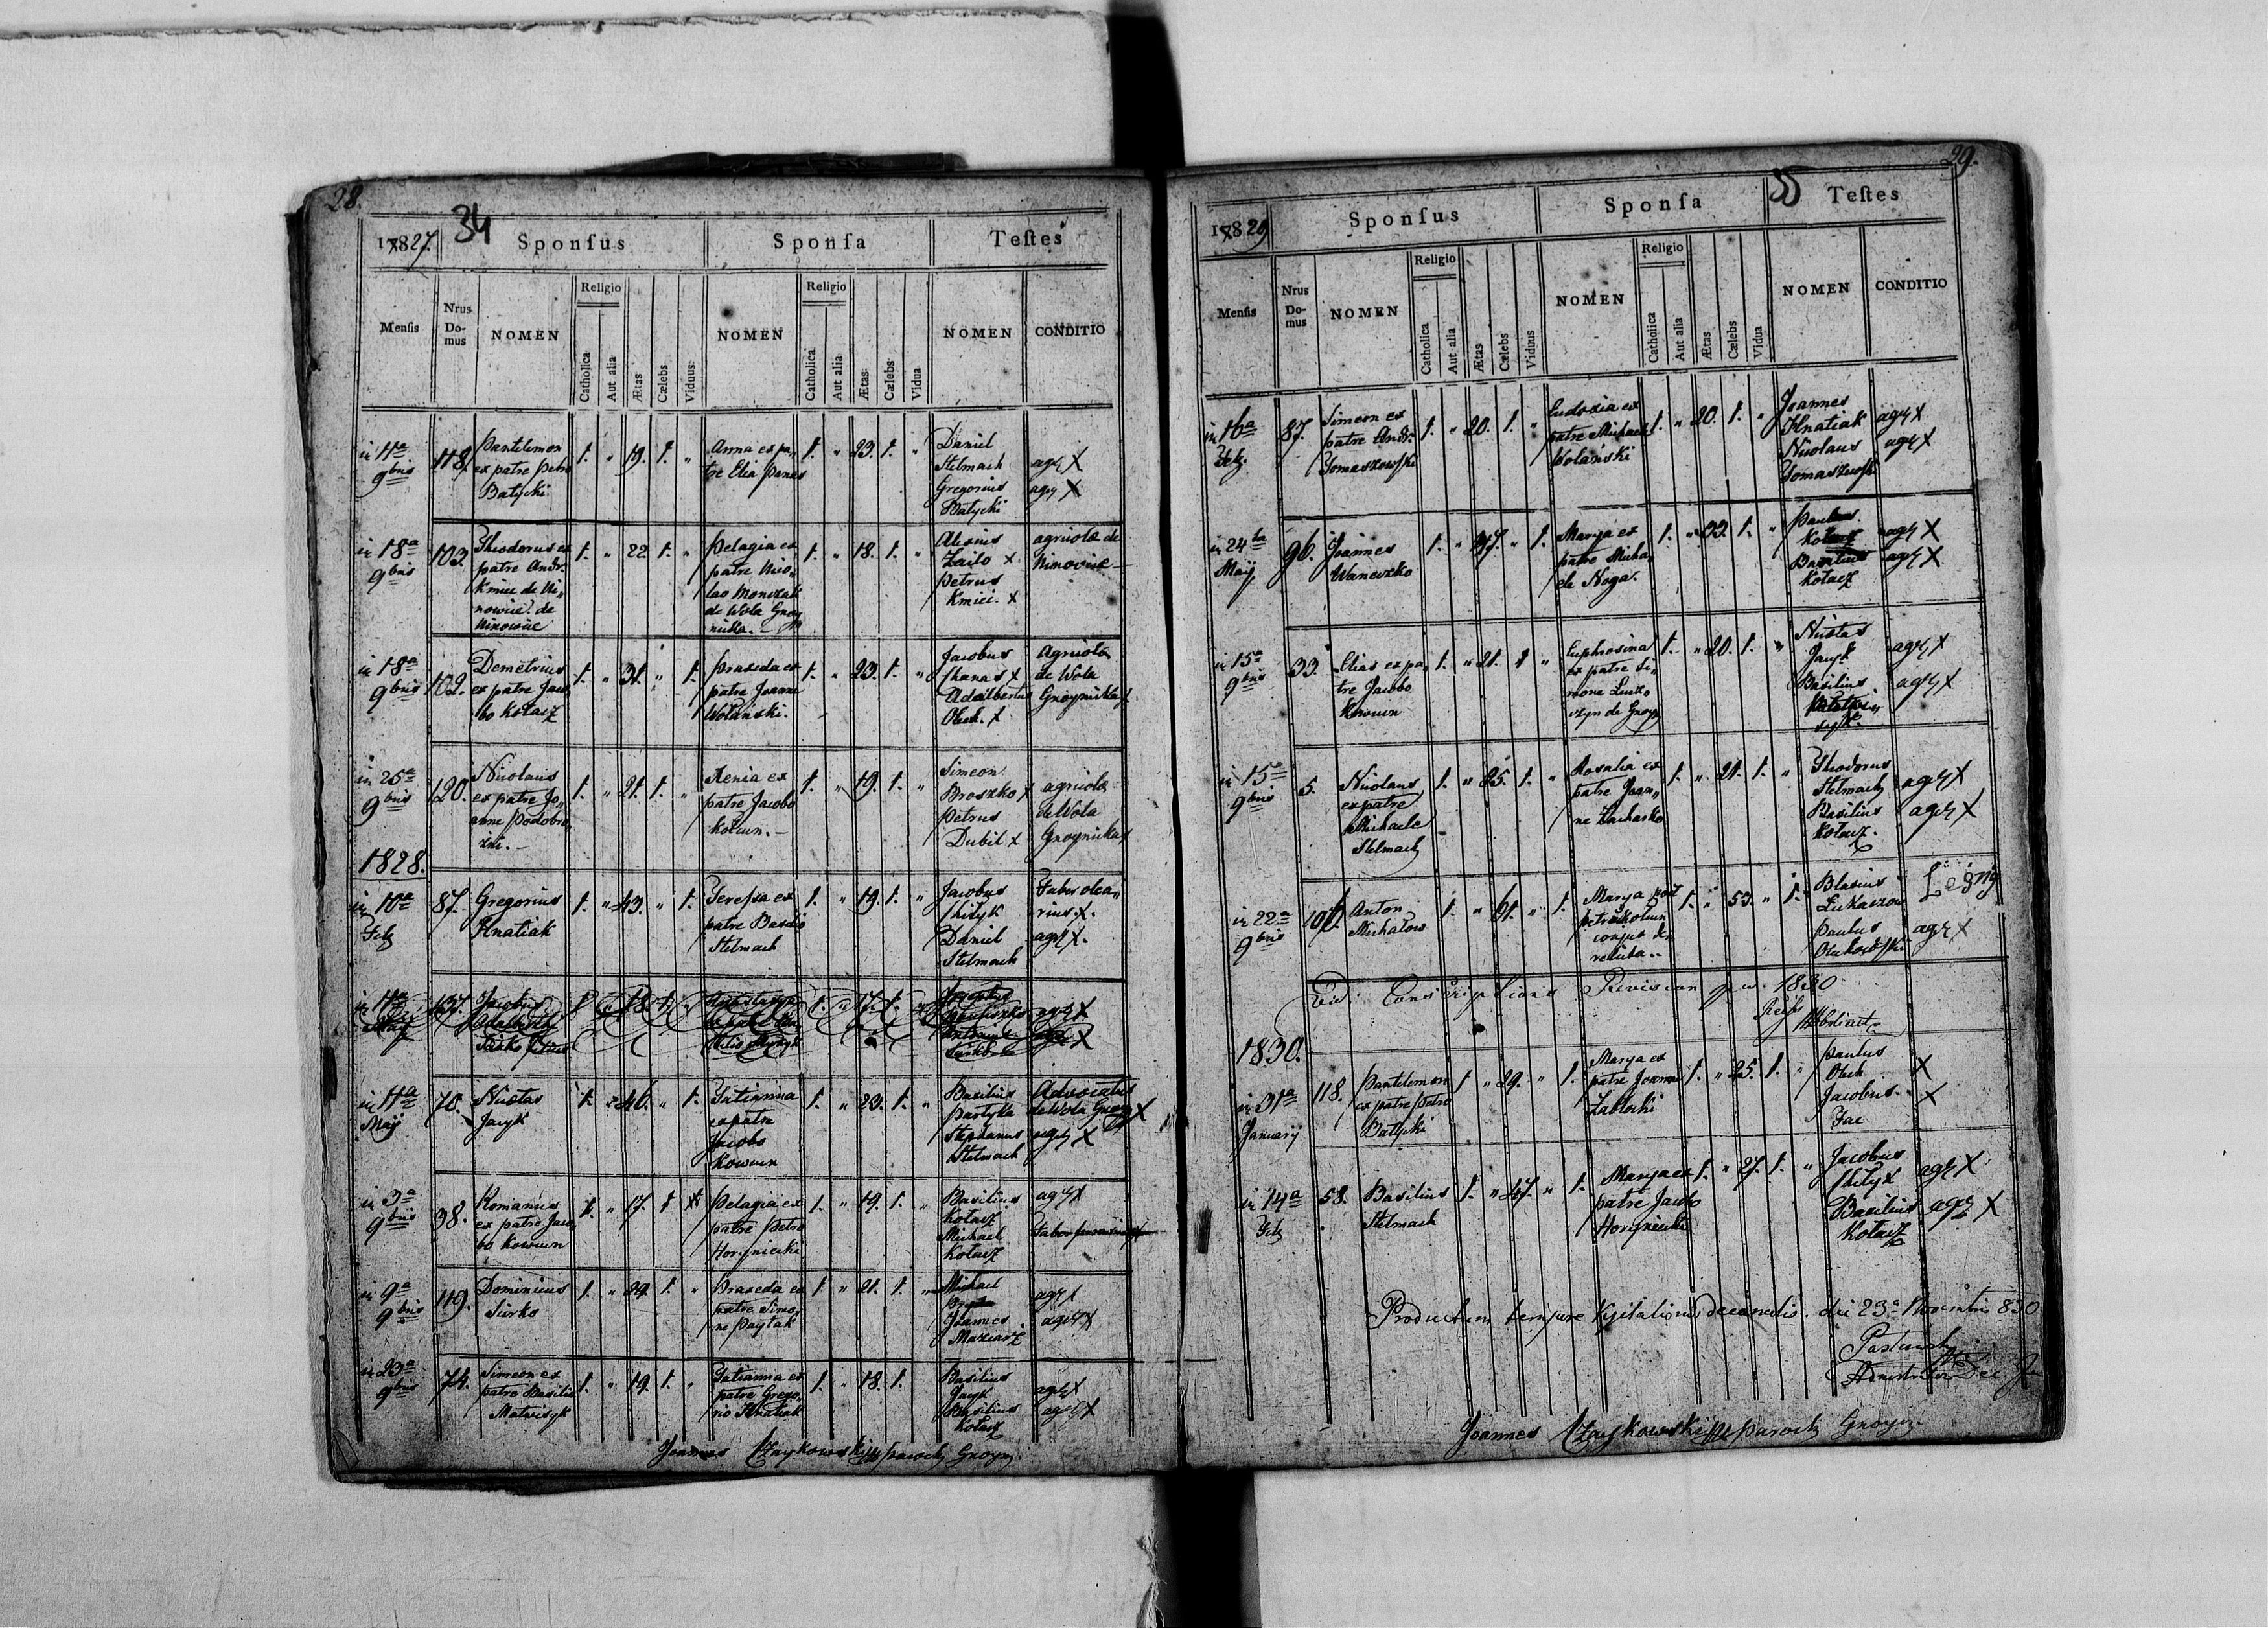 28.
34
1827.
Sponſus
Sponſa
Teſtes
Menſis
Nrus Do-mus
NOMEN
Religio
Catholica
Aut alia
Ætas
Cælebs
Viduus
NOMEN
Religio
Catholica
Aut alia
Ætas
Cælebs
Vidua
NOMEN
CONDITIO
in 11a 9bris
118.
Pantelemon
ex patre Petro
Batycki
1. " 19. 1. "
Anna ex pa,
tre Elia Panas
1. " 23. 1. "
Daniel
Stelmach
Gregorius
Batycki
agr X
agr X
in 18a 9bris
103.
Theodorus ex
patre Andr.
Kmiec de Ni,
nowice. de
Ninowice
1. " 22 1. "
Pelagia ex
patre Nico,
lao
de Wola Gnoy
nicka.
1. " 18. 1. "
Alexius
Zailo x
Petrus
Kmiec. x
agricolæ de
Ninovice
in 18a 9bris
102.
Demetrius
ex patre Jaco
bo Kołacz
1. " 31. " 1.
Praxeda ex
patre Joanne
Wolański.
1. " 23. 1. "
Jacobus
Panas x
Adalbertus
Olech. x
Agricolæ
de Wola
Gnoynicka
in 25a 9bris
120.
Nicolaus
ex patre Jo,
anne Podobro
1. " 21. 1. "
Xenia ex
patre Jacobo
Kowun.
1. " 19. 1. "
Simeon
Broszko x
Petrus
Dubil x
agricolæ
de Wola
Gnoynicka
1828.
in 10a Feb
87.
Gregorius
Hnatiak
1. " 43. " 1.
Teressa ex
patre Basilio
Stelmach
1. " 19. 1. "
Jacobus
Daniel
Stelmach
Faber olea,
rius. x.
agr x.
in 11a Maij
137.
Jacobus
1. " 18 1. "
1. " 17. 1. "
agr X
in 11a Maij
78.
Nicetas
Jacyk
1. " 46. " 1.
Tatianna
ex patre
Jacobo
Kowun
1. " 23. 1. "
Basilius
Partyka
Stephanus
Stelmach
Advocatus
de Wola Gnoy
agr X
in 3a 9bris
98.
Romanus
ex patre Jaco
bo Kowun
1. " 17. 1
Pelagia ex
patre Petro
Horyniecki
1. " 19. 1. "
Basilius
Kołacz
Michael
Kołacz
agr x
in 9a 9bris
119.
Dominicus
Surko
1. " 29. 1. "
Praxeda ex
patre Simo,
ne Paytak
1. " 21. 1. "
Michael
Joannes
Maziarz
agr x
agr x
in 23a 9bris
74.
Simeon ex
patre Basilio
Matwisyk
1. " 19. 1. "
Tatianna ex
patre Grego,
rio Hnatiak
1. " 18. 1.
Basilius
Jacyk
Basilius
Kołacz
agr x
agr x
Joannes Czaykowski paroch Gnoyn.
29.
35
1829
Sponſus
Sponſa
Teſtes
Menſis
Nrus Do-mus
NOMEN
Religio
Catholica
Aut alia
Ætas
Cælebs
Viduus
NOMEN
Religio
Catholica
Aut alia
Ætas
Cælebs
Vidua
NOMEN
CONDITIO
in 16a Feb.
87.
Simeon ex
patre Andr.
Tomaszowski
1. " 20. 1. "
Eudoxia ex
patre Michaele
Wolanski
1. " 20. 1. "
Joannes
Hnatiak
Nicolaus
Tomaszowski
agr X
agr X
in 24ta Maij
96.
Joannes
Waneczko
1. " 47. " 1.
Marya ex
patre Micha,
ele Noga.
1. " 33. 1. "
Paulus
Kołacz
Basilius
Kołacz
agr X
agr X
in 15a 9bris
33.
Elias ex pa,
tre Jacobo
Kowun
1. " 21. 1 "
Euphrosina
ex patre Si,
mone
czyn de Gnoy
1. " 20. 1. "
Nicetas
Jacyk
Basilius
agr X
agr X
in 15a 9bris
5.
Nicolaus
ex patre
Michaele
Stelmach
1. " 25. 1. "
Rosalia ex
patre Joan,
ne Zacharko
1. " 21. 1. "
Theodorus
Stelmach
Basilius
Kołacz.
agr X
agr X
in 22a 9bris
106.
Anton
Michałow
1. " 61. " 1.
Marya post
Petrum Kowun
conjux de,
relicta..
1. " 53. " 1.
Blasius
Łukaszow
Paulus
Olekowski
agr X
Vid: Conscriptions Revision pro. 1830
1830.
in 31a Januarij
118.
Pantelemon
ex patre Petro
Batycki
1 " 29. " 1.
Marya ex
patre Joanne
Zablocki
1. " 25. 1. "
Paulus
Olech
Jacobus.
Zae
X
X
in 14a Feb
58.
Basilius
Stelmach
1. " 47. " 1.
Marya ex
patre Jacobo
Horyniecki
1. " 27. 1. "
Jacobus
Basilius
Kołacz
agr X
agr X
Productum tempore Visitationis decanalis. die 23a Novembris 830
Joannes Czaykowski paroch Gnoyn.